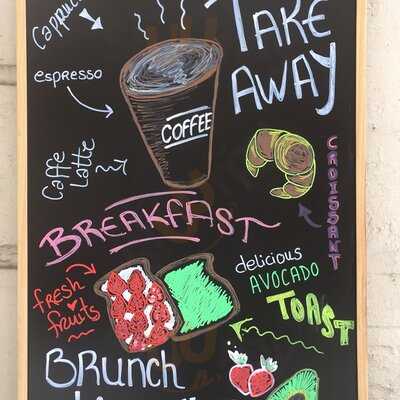 Cappucc
TAKE
AWAY
espresso
COFFEE
Caffe
Latte
CROISSANT
BREAKFAST
delicious
AVOCADO
TOAST
fresh
fruits
BRUNCH